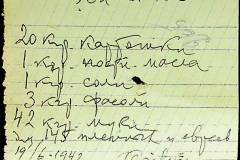 20 кгр. картошки
1 кгр. постн. масла
1 кгр. соли
3 кгр. фасоли
42 кгр. муки
145 пленных и евреев
19/I-1942